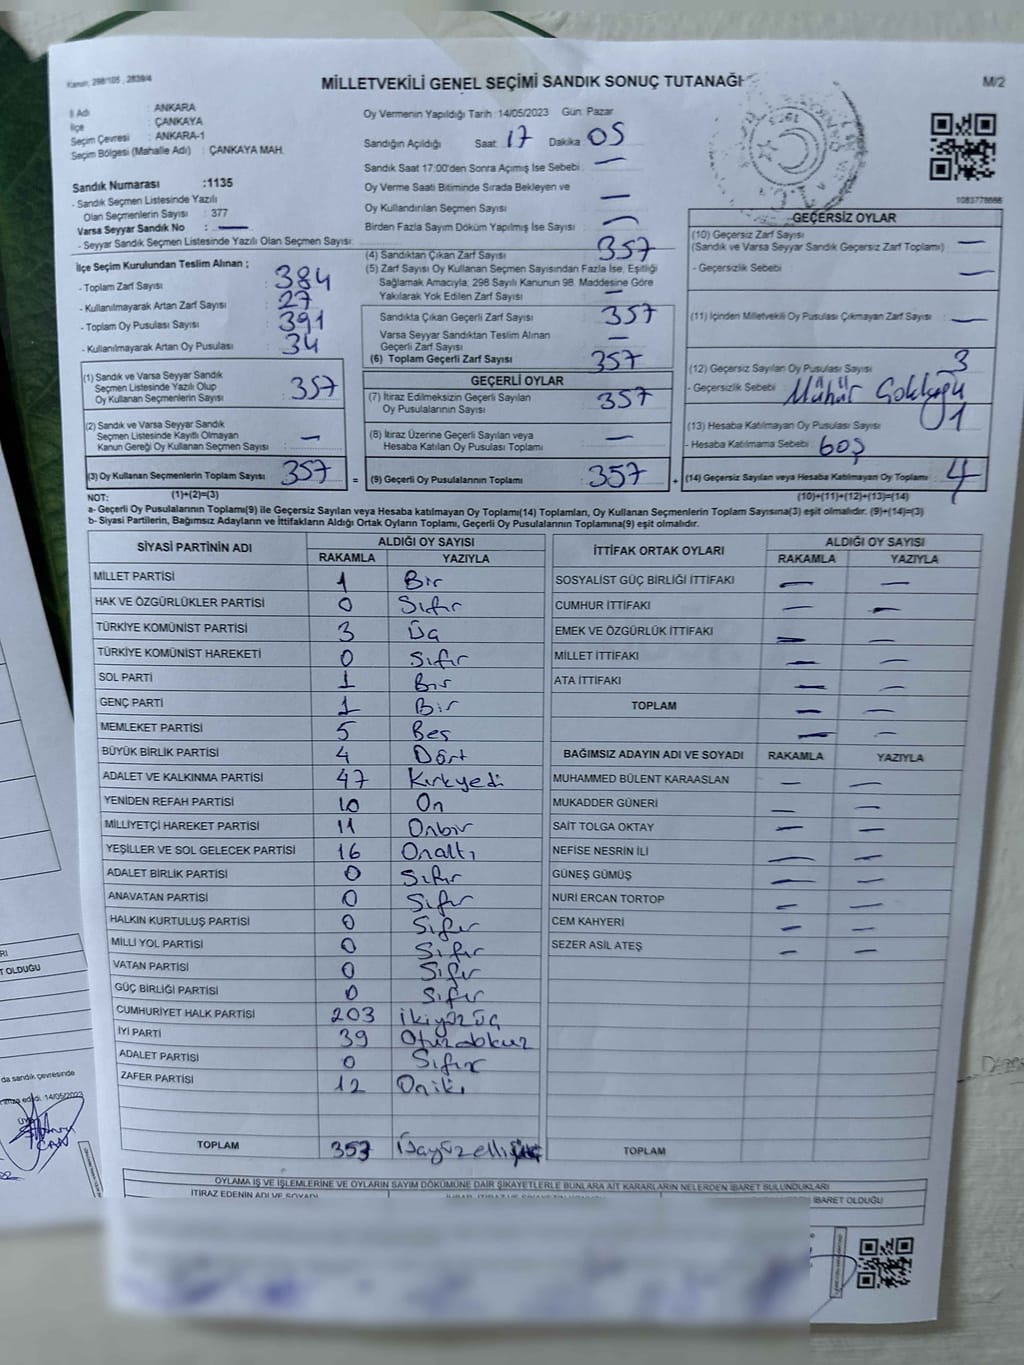 Kanun: 298/105 , 2839/4
MİLLETVEKİLİ GENEL SEÇİMİ SANDIK SONUÇ TUTANAĞI
M/2
İl Adı : ANKARA
İlçe : ÇANKAYA
Seçim Çevresi : ANKARA-1
Seçim Bölgesi (Mahalle Adı) : ÇANKAYA MAH.
Sandık Numarası :1135
- Sandık Seçmen Listesinde Yazılı
Olan Seçmenlerin Sayısı : 377
Varsa Seyyar Sandık No : —
- Seyyar Sandık Seçmen Listesinde Yazılı Olan Seçmen Sayısı:
Oy Vermenin Yapıldığı Tarih : 14/05/2023 Gün: Pazar
Sandığın Açıldığı Saat: 17 Dakika 05
Sandık Saat 17:00'den Sonra Açımış İse Sebebi : —
Oy Verme Saati Bitiminde Sırada Bekleyen ve
Oy Kullandırılan Seçmen Sayısı : —
Birden Fazla Sayım Döküm Yapılmış İse Sayısı : —
1083778666
İlçe Seçim Kurulundan Teslim Alınan ;
- Toplam Zarf Sayısı : 384
- Kullanılmayarak Artan Zarf Sayısı : 27
- Toplam Oy Pusulası Sayısı : 391
- Kullanılmayarak Artan Oy Pusulası : 34
(1) Sandık ve Varsa Seyyar Sandık
Seçmen Listesinde Yazılı Olup
Oy Kullanan Seçmenlerin Sayısı : 357
(2) Sandık ve Varsa Seyyar Sandık
Seçmen Listesinde Kayıtlı Olmayan
Kanun Gereği Oy Kullanan Seçmen Sayısı : —
(3) Oy Kullanan Seçmenlerin Toplam Sayısı : 357 =
(1)+(2)=(3)
(4) Sandıktan Çıkan Zarf Sayısı : 357
(5) Zarf Sayısı Oy Kullanan Seçmen Sayısından Fazla İse, Eşitliği
Sağlamak Amacıyla, 298 Sayılı Kanunun 98. Maddesine Göre
Yakılarak Yok Edilen Zarf Sayısı : —
Sandıkta Çıkan Geçerli Zarf Sayısı : 357
Varsa Seyyar Sandıktan Teslim Alınan
Geçerli Zarf Sayısı : —
(6) Toplam Geçerli Zarf Sayısı : 357
GEÇERLİ OYLAR
(7) İtiraz Edilmeksizin Geçerli Sayılan
Oy Pusulalarının Sayısı : 357
(8) İtiraz Üzerine Geçerli Sayılan veya
Hesaba Katılan Oy Pusulası Toplamı : —
(9) Geçerli Oy Pusulalarının Toplamı : 357 +
GEÇERSİZ OYLAR
(10) Geçersiz Zarf Sayısı : —
(Sandık ve Varsa Seyyar Sandık Geçersiz Zarf Toplamı)
- Geçersizlik Sebebi : —
(11) İçinden Milletvekili Oy Pusulası Çıkmayan Zarf Sayısı : —
(12) Geçersiz Sayılan Oy Pusulası Sayısı : 3
- Geçersizlik Sebebi : Mühür Çokluğu
(13) Hesaba Katılmayan Oy Pusulası Sayısı : 1
- Hesaba Katılmama Sebebi : boş
(14) Geçersiz Sayılan veya Hesaba Katılmayan Oy Toplamı : 4
(10)+(11)+(12)+(13)=(14)
NOT:
a- Geçerli Oy Pusulalarının Toplamı(9) ile Geçersiz Sayılan veya Hesaba katılmayan Oy Toplamı(14) Toplamları, Oy Kullanan Seçmenlerin Toplam Sayısına(3) eşit olmalıdır. (9)+(14)=(3)
b- Siyasi Partilerin, Bağımsız Adayların ve İttifakların Aldığı Ortak Oyların Toplamı, Geçerli Oy Pusulalarının Toplamına(9) eşit olmalıdır.
SİYASİ PARTİNİN ADI ALDIĞI OY SAYISI
RAKAMLA YAZIYLA
MİLLET PARTİSİ 1 Bir
HAK VE ÖZGÜRLÜKLER PARTİSİ 0 Sıfır
TÜRKİYE KOMÜNİST PARTİSİ 3 Üç
TÜRKİYE KOMÜNİST HAREKETİ 0 Sıfır
SOL PARTİ 1 Bir
GENÇ PARTİ 1 Bir
MEMLEKET PARTİSİ 5 Beş
BÜYÜK BİRLİK PARTİSİ 4 Dört
ADALET VE KALKINMA PARTİSİ 47 Kırkyedi
YENİDEN REFAH PARTİSİ 10 On
MİLLİYETÇİ HAREKET PARTİSİ 11 Onbir
YEŞİLLER VE SOL GELECEK PARTİSİ 16 Onaltı
ADALET BİRLİK PARTİSİ 0 Sıfır
ANAVATAN PARTİSİ 0 Sıfır
HALKIN KURTULUŞ PARTİSİ 0 Sıfır
MİLLİ YOL PARTİSİ 0 Sıfır
VATAN PARTİSİ 0 Sıfır
GÜÇ BİRLİĞİ PARTİSİ 0 Sıfır
CUMHURİYET HALK PARTİSİ 203 İkiyüzüç
İYİ PARTİ 39 Otuzdokuz
ADALET PARTİSİ 0 Sıfır
ZAFER PARTİSİ 12 Oniki
TOPLAM 353 Üçyüzelliüç
İTTİFAK ORTAK OYLARI ALDIĞI OY SAYISI
RAKAMLA YAZIYLA
SOSYALİST GÜÇ BİRLİĞİ İTTİFAKI — —
CUMHUR İTTİFAKI — —
EMEK VE ÖZGÜRLÜK İTTİFAKI — —
MİLLET İTTİFAKI — —
ATA İTTİFAKI — —
TOPLAM — —
— —
BAĞIMSIZ ADAYIN ADI VE SOYADI RAKAMLA YAZIYLA
MUHAMMED BÜLENT KARAASLAN — —
MUKADDER GÜNERİ — —
SAİT TOLGA OKTAY — —
NEFİSE NESRİN İLİ — —
GÜNEŞ GÜMÜŞ — —
NURİ ERCAN TORTOP — —
CEM KAHYERİ — —
SEZER ASİL ATEŞ — —
TOPLAM
OYLAMA İŞ VE İŞLEMLERİNE VE OYLARIN SAYIM DÖKÜMÜNE DAİR ŞİKAYETLERLE BUNLARA AİT KARARLARIN NELERDEN İBARET BULUNDUKLARI
İTİRAZ EDENİN ADI VE SOYADI
İBARET OLDUĞU
T OLDUĞU
da sandık çevresinde
edildi. 14/05/2023